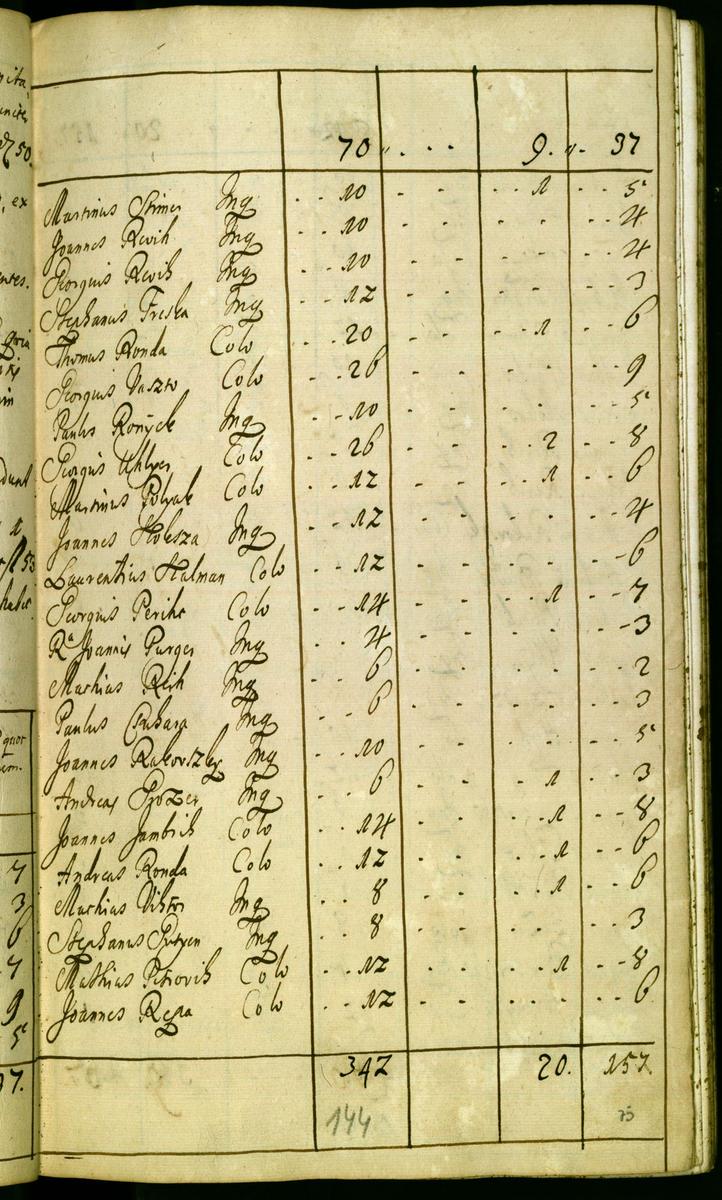 70 " . . . 9. " . 37
Martinus Stimer Inq . . 10 - - . . 1 . . 5
Joannes Revih Inq . . 10 - - . . . . 4
Georgius Revih Inq . . 10 - - . . . . 4
Stephanus Freska Inq . . 12 - - . . . . 3
Thomas Ronda Colo . . 20 - - . . 1 . . 6
Georgius Vaszto Colo . . 26 - - . . . . 9
Paulus Ronyek Inq . . 10 - - . . . . 5
Georgius Uhlyer Colo . . 26 - - . . 2 . . 8
Martinus Polyak Colo . . 12 - - . . 1 . . 6
Joannes Holesza Inq . . 12 - - . . . . 4
Laurenthius Halman Colo . . 12 - - . . . . 6
Georgius Colo . . 14 - - . . 1 . . 7
Ra Joannis Purger Inq . . 4 - - . . . . 3
Mathias Reih Inq . . 6 - - . . . . 2
Paulus Inq . . 6 - - . . . . 3
Joannes Rakovszky Inq . . 10 - - . . . . 5
Andreas Inq . . 6 - - . . 1 . . 3
Joannes Jambrih Colo . . 14 - - . . 1 . . 8
Andreas Ronda Colo . . 12 - - . . 1 . . 6
Mathias Vihtor Inq . . 8 - - . . 1 . . 6
Stephanus Inq . . 8 - - . . . . 3
Mathias Petrovih Colo . . 12 - - . . 1 . . 8
Joannes Repa Colo . . 12 - - . . . . 6
342 20. 157.
144